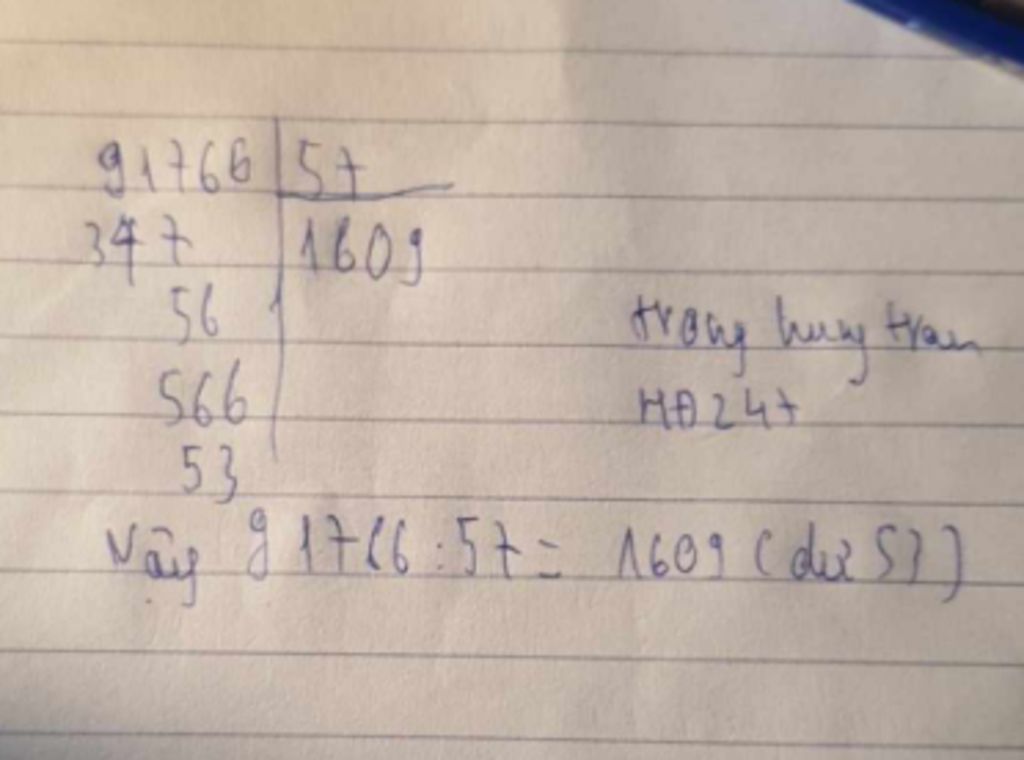 91766 57
347 1609
56
566
53
trọng hung tran
HĐ247
Vậy 91766 : 57 = 1609 (dư 53)